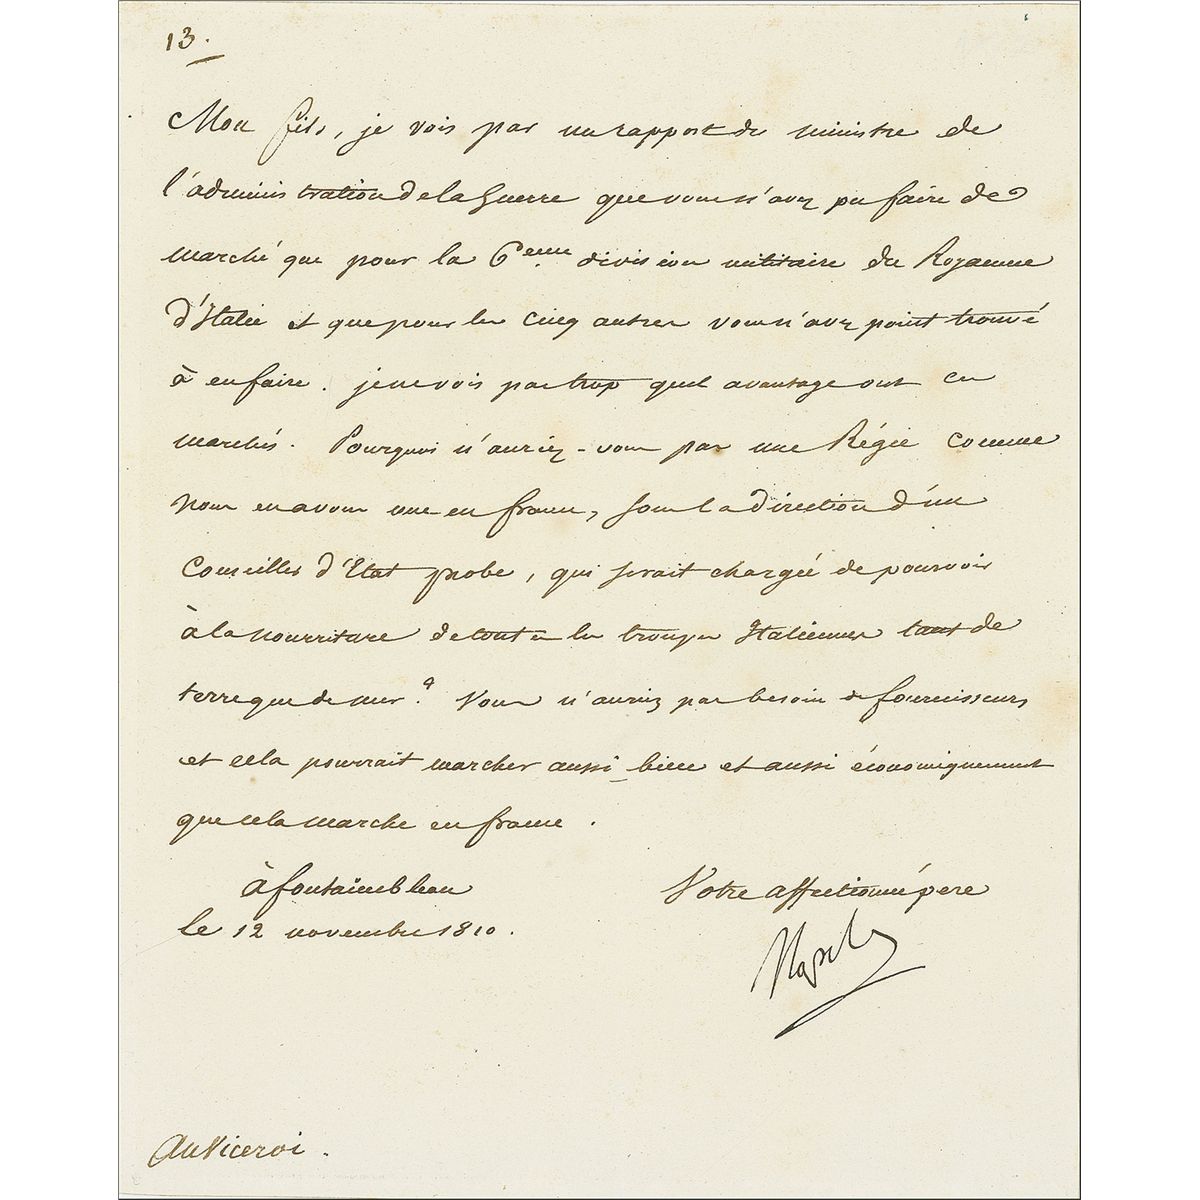 13.
Mon fils, je vois par un rapport du ministre de
l'administration de la Guerre que vous n'avez pu faire de
marché que pour la 6eme division militaire du Royaume
d'Italie et que pour les cinq autres vous n'avez point trouvé
à en faire. je ne vois pas trop quel avantage ont ces
marchés. Pourquoi n'auriez-vous pas une Régie comme
nous en avons une en france, sous la direction d'un
Conseiller d'Etat probe, qui serait chargée de pourvoir
à la nourriture de toutes les troupes Italiennes tant de
terre que de mer? Vous n'auriez pas besoin de fournisseurs
et cela pourrait marcher aussi bien et aussi économiquement
que cela marche en france.
à fontainebleau
le 12 novembre 1810.
Votre affectionné pere
Napole
Au Viceroi.